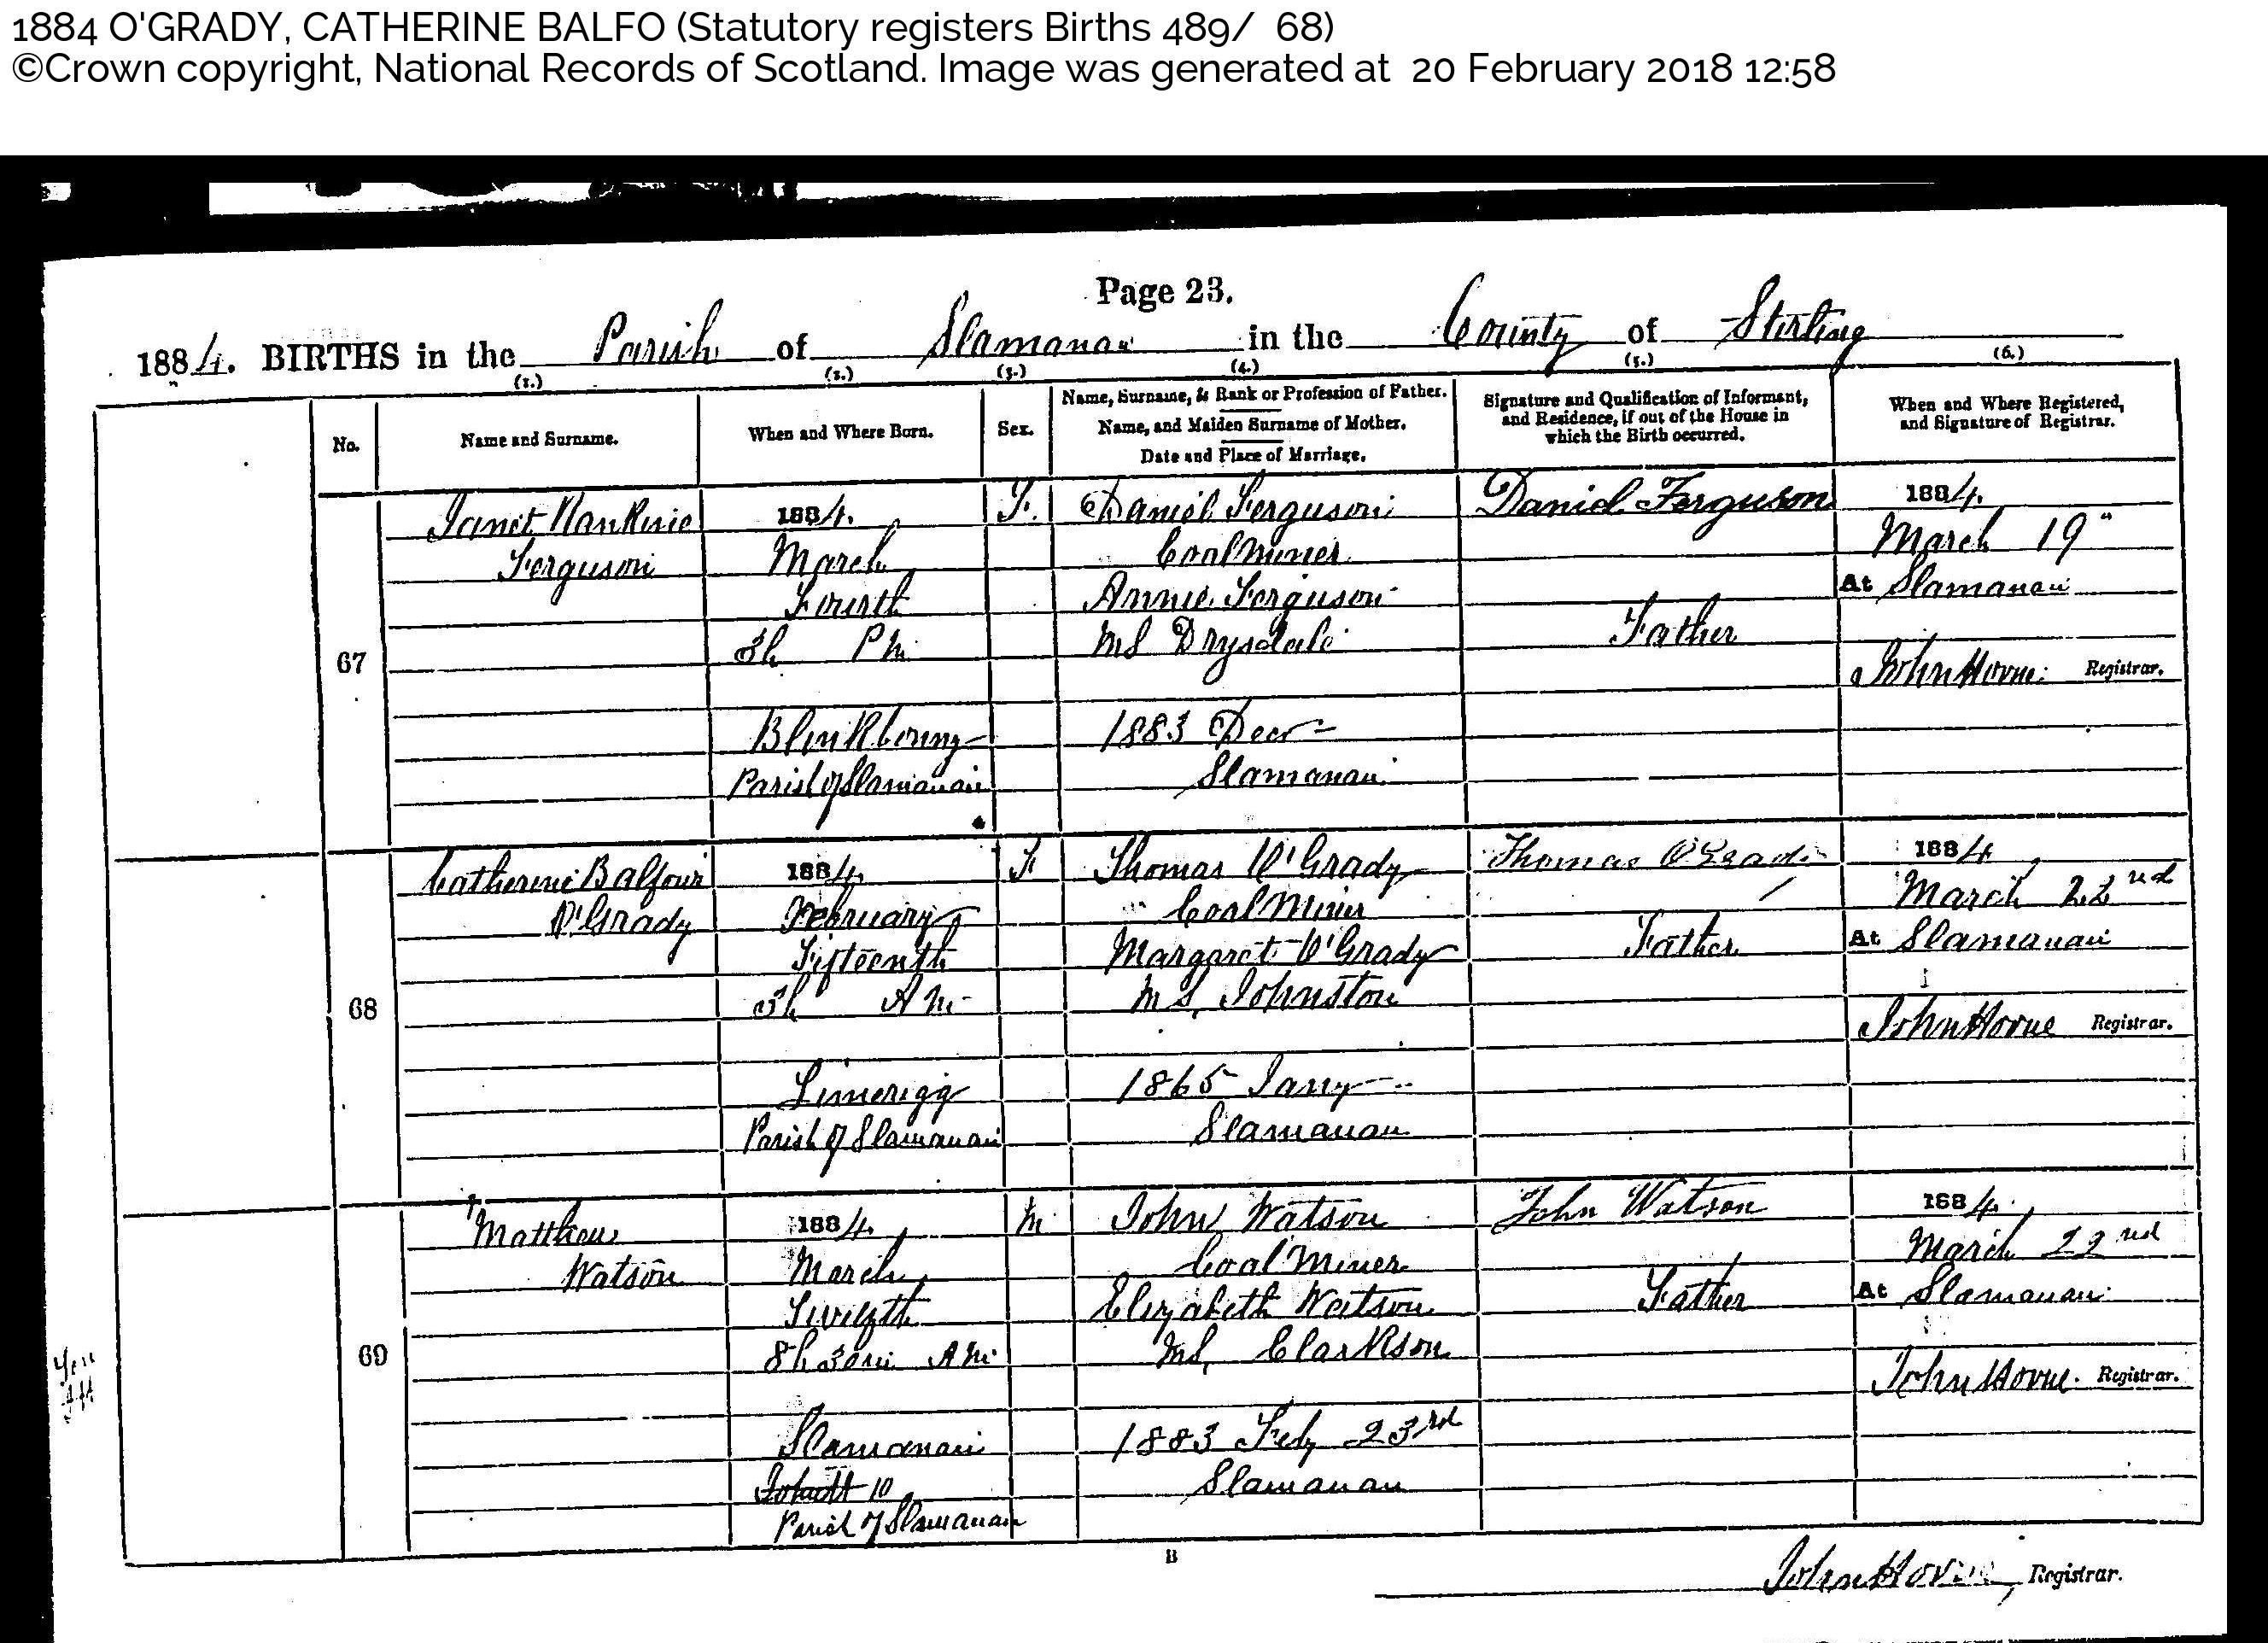 1884 O'GRADY, CATHERINE BALFO (Statutory registers Births 489/ 68)
©Crown copyright, National Records of Scotland. Image was generated at 20 February 2018 12:58
Page 23.
1884. BIRTHS in the Parish of Slamanan in the County of Stirling
(1.) (2.) (3.) (4.) (5.) (6.)
No.
Name and Surname.
When and Where Born.
Sex.
Name, Surname, & Rank or Profession of Father.
Name, and Maiden Surname of Mother.
Date and Place of Marriage.
Signature and Qualification of Informant,
and Residence, if out of the House in
which the Birth occurred.
When and Where Registered,
and Signature of Registrar.
67
Janet Rankine
Ferguson
1884.
March
Fourth
3h PM
Parish of Slamanan
F.
Daniel Ferguson
Coal Miner
Annie Ferguson
MS Drysdale
1883 Decr
Slamanan
Daniel Ferguson
Father
1884.
March 19"
At Slamanan
John Horne Registrar.
68
Catherine Balfour
O'Grady
1884.
February
Fifteenth
3h AM
Limerigg
Parish of Slamanan
F
Thomas O'Grady
Coal Miner
Margaret O'Grady
MS. Johnston
1865 Jany
Slamanan
Thomas O'Grady
Father
1884
March 22nd
At Slamanan
John Horne Registrar.
69
Matthew
Watson
1884.
March
Twelfth
8h 30m AM
Slamanan
10
Parish of Slamanan
M
John Watson
Coal Miner
Elizabeth Watson
MS. Clarkson
1883 Feby 23rd
Slamanan
John Watson
Father
1884.
March 22nd
At Slamanan
John Horne. Registrar.
B
John Horne, Registrar.